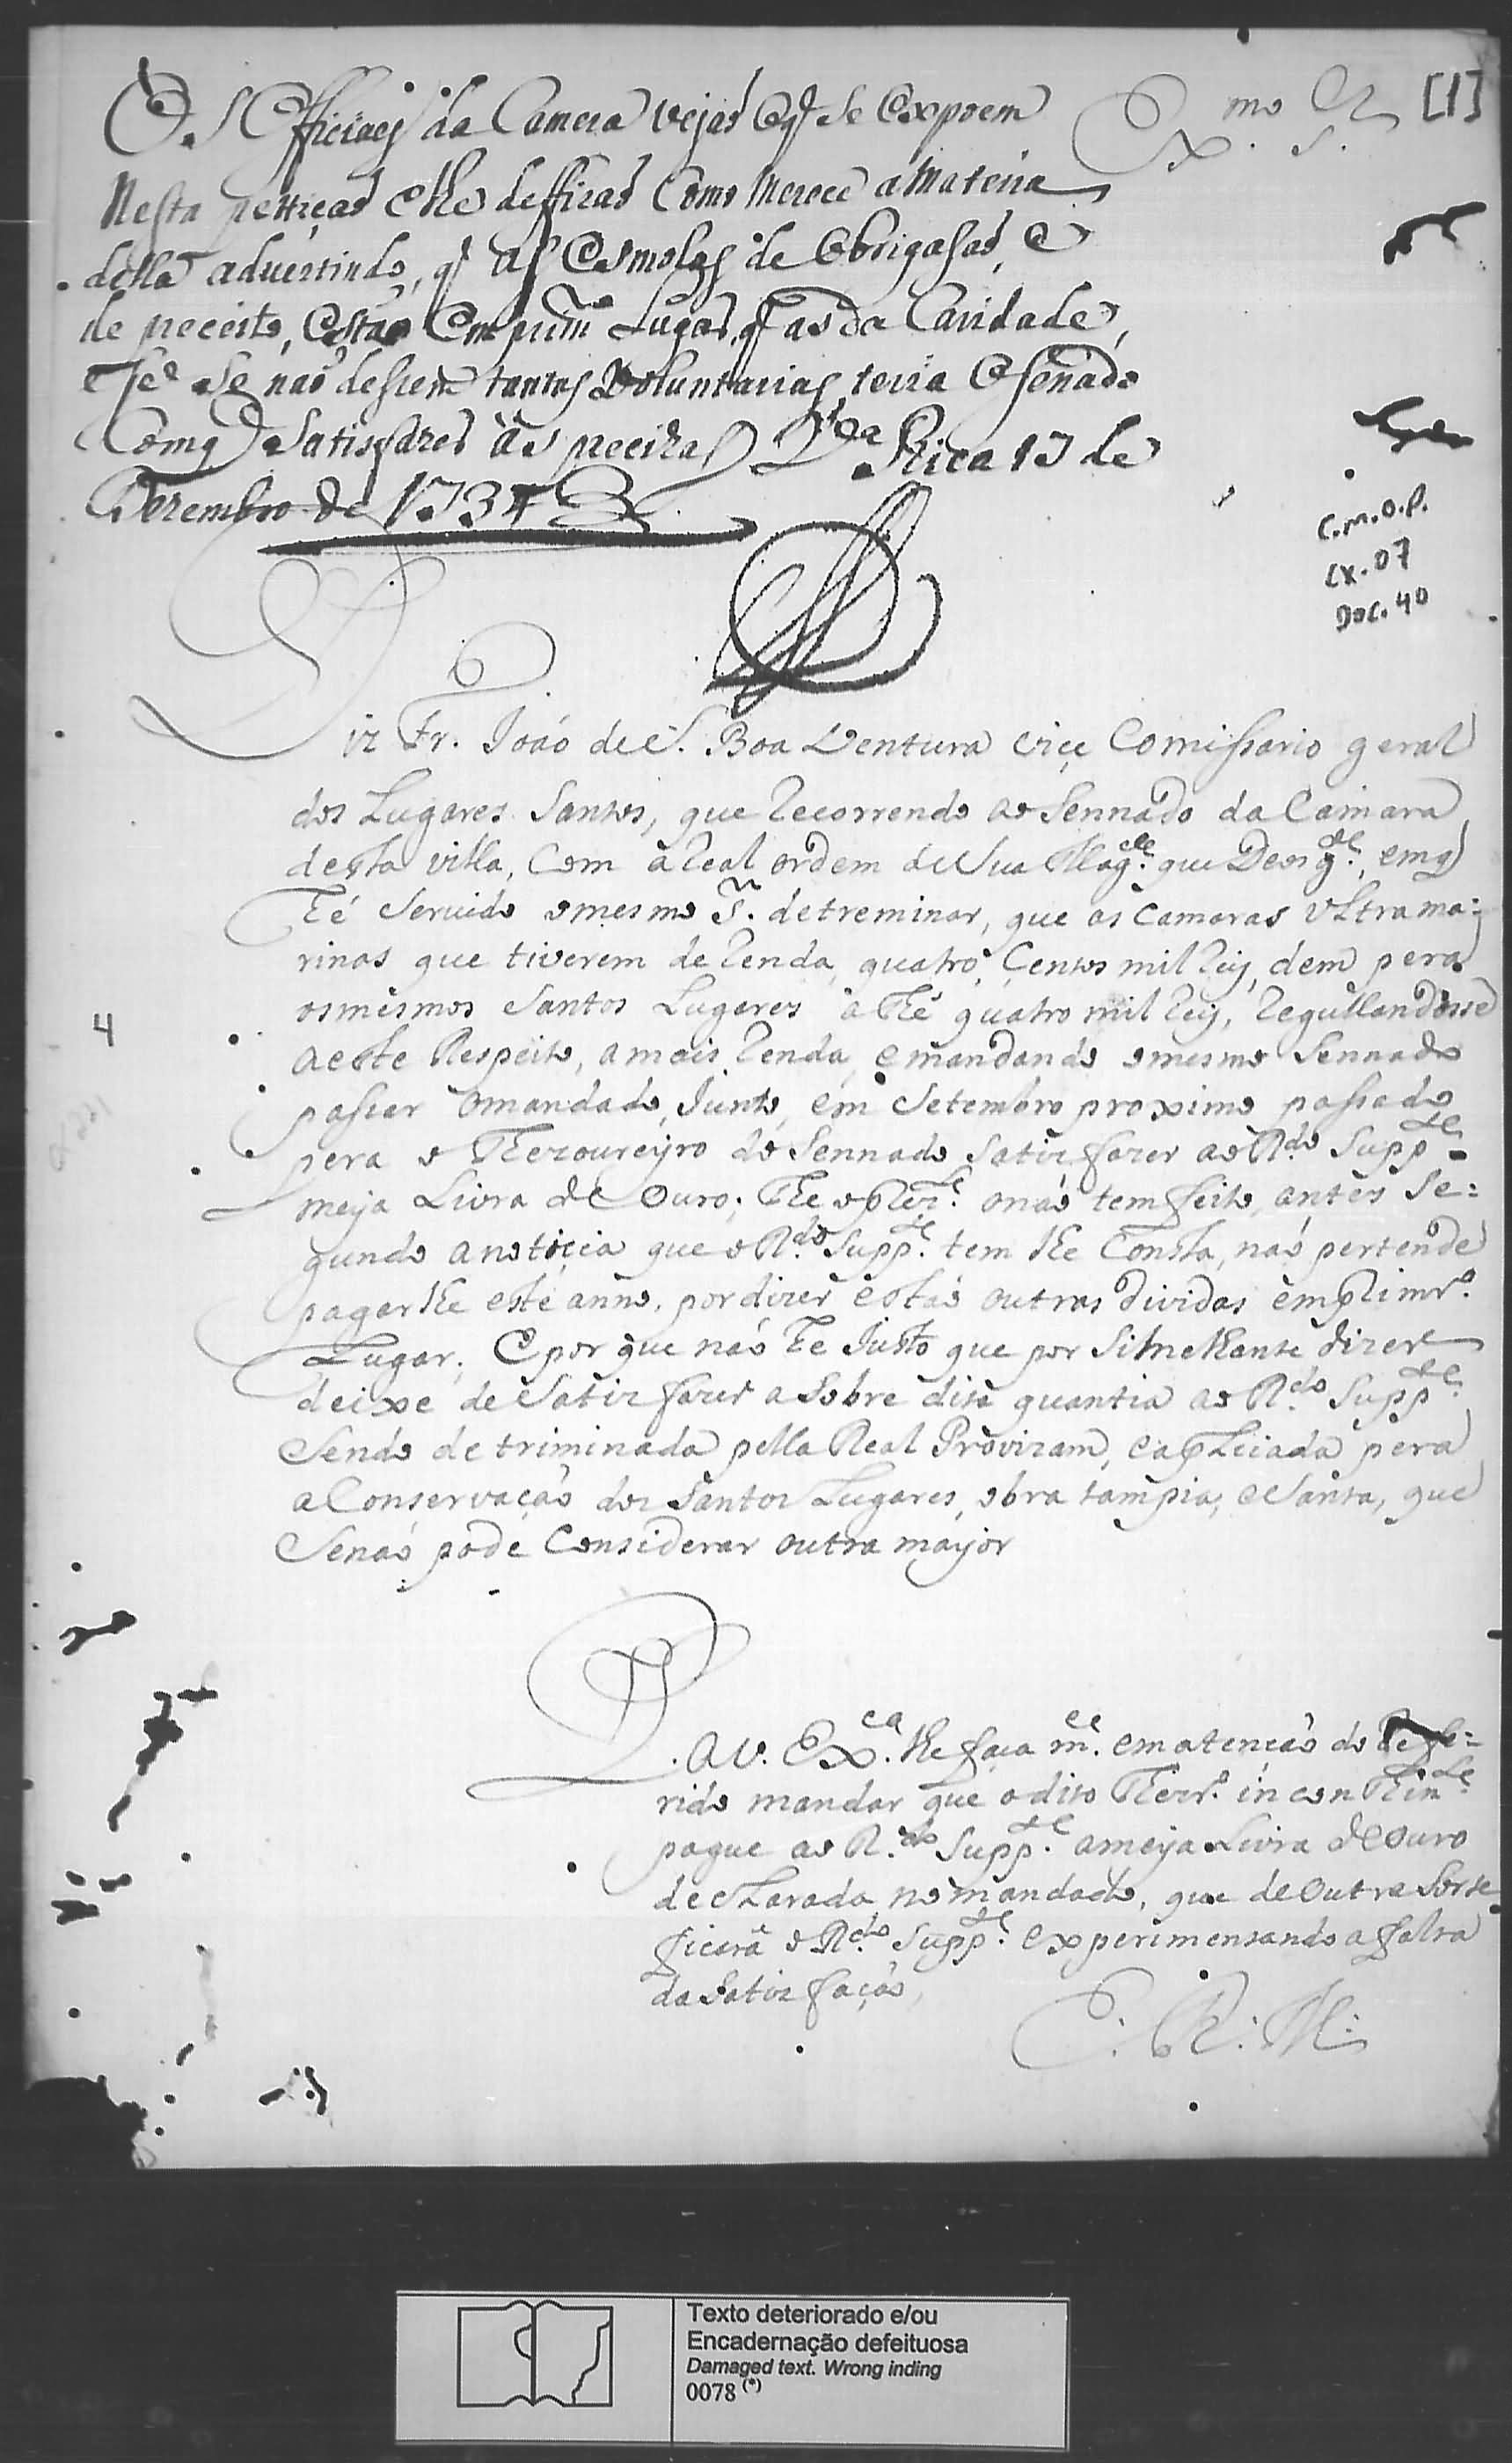 Ex.mo S.r [1]
Os Officiaes da Camera vejaõ o q̃ se expoem
nesta petiçaõ e lhe deffiraõ como merece a materia
della aduertindo, q̃ as esmolas de obrigasaõ, e
de preceito, estaõ em prim.ro lugar, q̃ as da Caridade,
e se se naõ dessem tantas voluntarias, teria o senado
com q̃ satisfazer as precizas V.a Rica 17 de
Dezembro de 1734
C.M.O.P.
CX. 07
DOC. 40
Diz Fr. Joaõ de S. Boa Ventura vice Comissario geral
dos Lugares Santos, que recorrendo ao Sennado da Camara
desta villa, com a real ordem de Sua Mag.de que Deos g.de, em q̃
hé seruido o mesmo S.r detreminar, que as camaras vltrama:
rinas que tiverem de renda, quatro centos mil reis, dem pera
os mesmos Santos Lugares athé quatro mil reis, regullandosse
a este respeito, a mais renda, e mandando o mesmo Sennado
passar o mandado, junto, em Setembro proximo passado
pera o Thezoureyro do Sennado satisfazer ao R.do Supp.te
meya Livra de ouro;
o naõ tem feito, antes se:
gundo a noticia que o R.do Supp.te tem lhe consta, naõ pertende
pagar lhe este anno, por dizer estaõ outras dividas em primr.o
Lugar; E por que naõ he justo que por similhante dizer
deixe de satisfazer a sobre dita quantia ao R.do Supp.te
sendo detriminada pella Real Provizam, e aplicada pera
a Conservaçaõ dos Santos Lugares, obra tam pia, e santa, que
se naõ pode considerar outra mayor
4
P. a V. Ex.ca lhe faça m.ce em atençaõ do refe:
rido mandar que o dito Thezr.o incontinen.te
pague ao R.do Supp.te a meya Livra de ouro
declarada no mandado, que de outra sorte
ficará o R.do Supp.te experimentando a falta
da satisfaçaõ,
E. R. M.
Texto deteriorado e/ou
Encadernação defeituosa
Damaged text. Wrong inding
0078 (*)